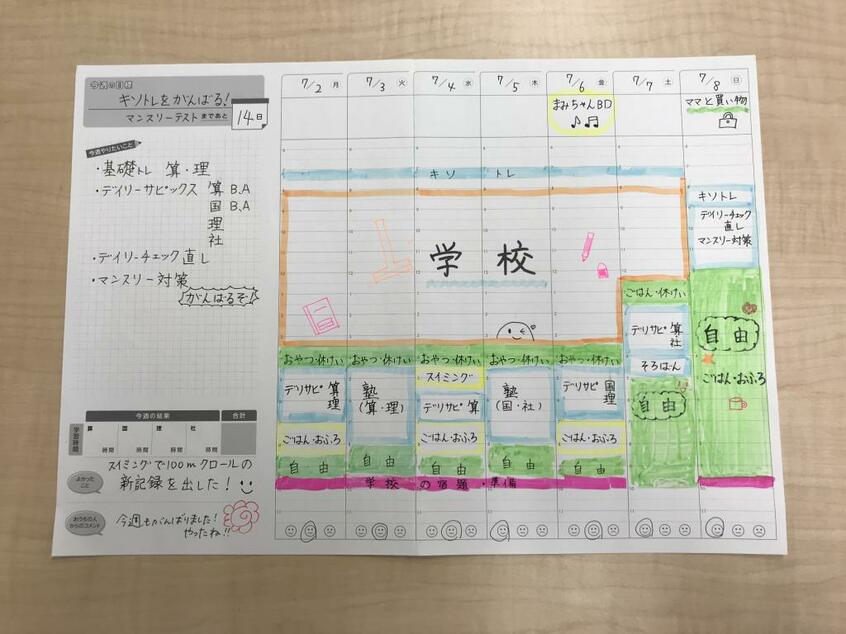 今週の目標
キソトレをがんばる!
マンスリーテストまであと 14日
今週やりたいこと
・基礎トレ 算・理
・デイリーサピックス 算 B.A
国 B.A
理
社
・デイリーチェック直し
・マンスリー対策
がんばるぞ♪
今週の結果 合計
学習時間 算 国 理 社
時間 時間 時間 時間
よかったこと
スイミングで100mクロールの
新記録を出した!
おうちの人からのコメント
今週もがんばりました!
やったね!!
7/2 月 7/3 火 7/4 水 7/5 木 7/6 金 7/7 土 7/8 日
まみちゃんBD
ママと買い物
キソトレ
学校
おやつ・休けい おやつ・休けい おやつ・休けい おやつ・休けい おやつ・休けい
デリサピ 算
理
塾
(算・理)
スイミング
デリサピ 算
塾
(国・社)
デリサピ 国
理
ごはん・おふろ ごはん・おふろ ごはん・おふろ
自由 自由 自由 自由 自由
学校の宿題・準備
ごはん・休けい
デリサピ 算
社
そろばん
自由
キソトレ
デイリーチェック
直し
マンスリー対策
自由
ごはん・おふろ